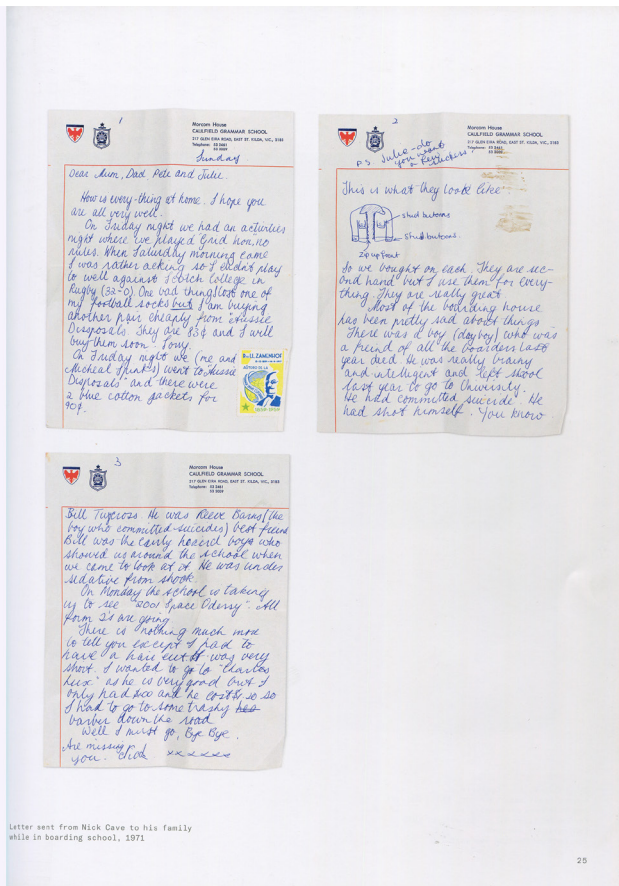 1
Morcom House
CAULFIELD GRAMMAR SCHOOL
217 GLEN EIRA ROAD, EAST ST. KILDA, VIC., 3183
Telephone: 53 2461
53 5009
Sunday
Dear Mum, Dad Pete and Julie.
How is every-thing at home. I hope you
are all very well.
On Friday night we had an activities
night where we played Grid Iron, no
rules. When Saturday morning came
I was rather acking so I didn't play
to well against Scotch College in
Rugby (32-0) One bad thing I lost one of
my football socks but I am buying
another pair cheaply from "Aussie
Disposals" They are 83¢ and I will
buy them soon.
On Friday night we (me and
Micheal Spinks) went to "Aussie
Disposals" and there were
2 blue cotton jackets for
90¢.
ZAMENHOF
AŬTORO DE LA
2
Morcom House
CAULFIELD GRAMMAR SCHOOL
217 GLEN EIRA ROAD, EAST ST. KILDA, VIC., 3183
Telephone: 53 2461
53 5009
P.S. Julie - do
you want
a
This is what they look like
stud buttons
Stud buttons
Zip up front
So we bought on each. They are sec-
ond hand but I use them for every-
thing. They are really great
Most of the boarding house
has been pretty sad about things
There was a boy (day boy) who was
a friend of all the boarders last
year died. He was really brainy
and intelligent and left shool
last year to go to University.
He had committed suicide. He
had shot himself. You know
3
Morcom House
CAULFIELD GRAMMAR SCHOOL
217 GLEN EIRA ROAD, EAST ST. KILDA, VIC., 3183
Telephone: 53 2461
53 5009
Bill Tuycross. He was Reeve Barns (the
boy who committed suicides) best friend
Bill was the curly haired boy who
showed us around the school when
we came to look at it. He was under
sedative from shock.
On Monday the school is taking
us to see "2001 Space Odessy". All
form 2's are going
There is nothing much more
to tell you except I had to
have a hair cut it was very
short. I wanted to go to "Charles
Lux" as he is very good but I
only had and he cost so
I had to go to some trashy
barber down the road
Well I must go, Bye Bye.
Are missing
you. xxxxxx
Letter sent from Nick Cave to his family
while in boarding school, 1971
25